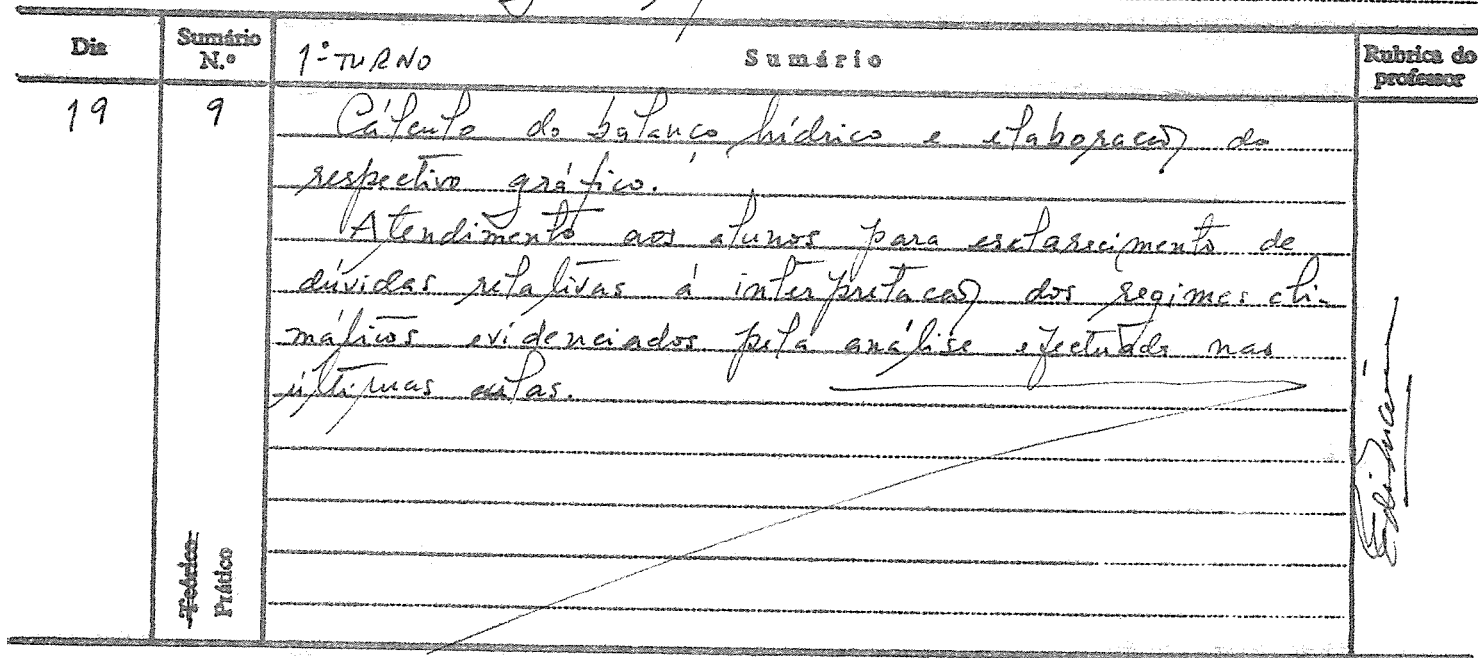 Dia Sumário N.º 1º TURNO Sumário Rubrica do professor
19 9 Cálculo do balanço hídrico e elaboração do
respectivo gráfico.
Atendimento aos alunos para esclarecimento de
dúvidas relativas á interpretação dos regimes cli-
máticos evidenciados pela análise efectuada nas
últimas aulas.
Teórico
Prático